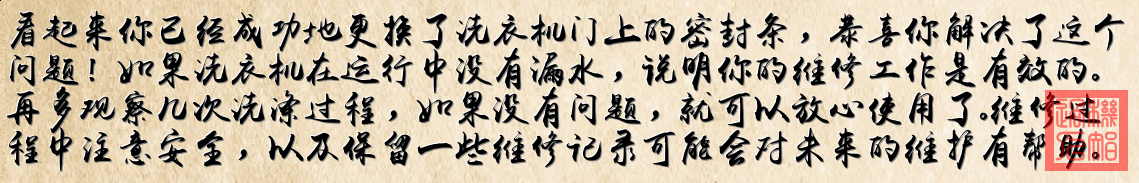 看起来你已经成功地更换了洗衣机门上的密封条，恭喜你解决了这个
问题！如果洗衣机在运行中没有漏水，说明你的维修工作是有效的。
再多观察几次洗涤过程，如果没有问题，就可以放心使用了。维修过
程中注意安全，以及保留一些维修记录可能会对未来的维护有帮助。